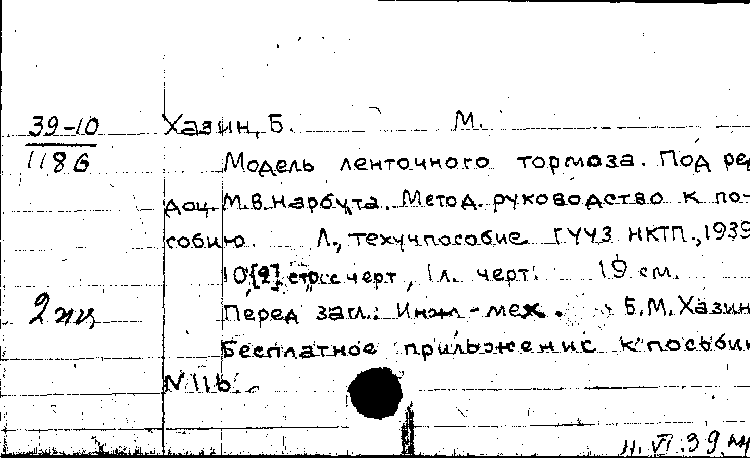 39-10
1186
Хазин, Б. М.
Модель ленточного тормоза. Под ред
доц. М.В. Нарбута. Метод. руководство к по-
собию. Л., техучпособие ГУУЗ НКТП, 1939
10,[2] стр. с черт, 1л. черт. 19 см.
2 экз
Перед загл.: Инж-мех. Б.М. Хазин
Бесплатное приложение к пособию
N 116.
11.VI.39